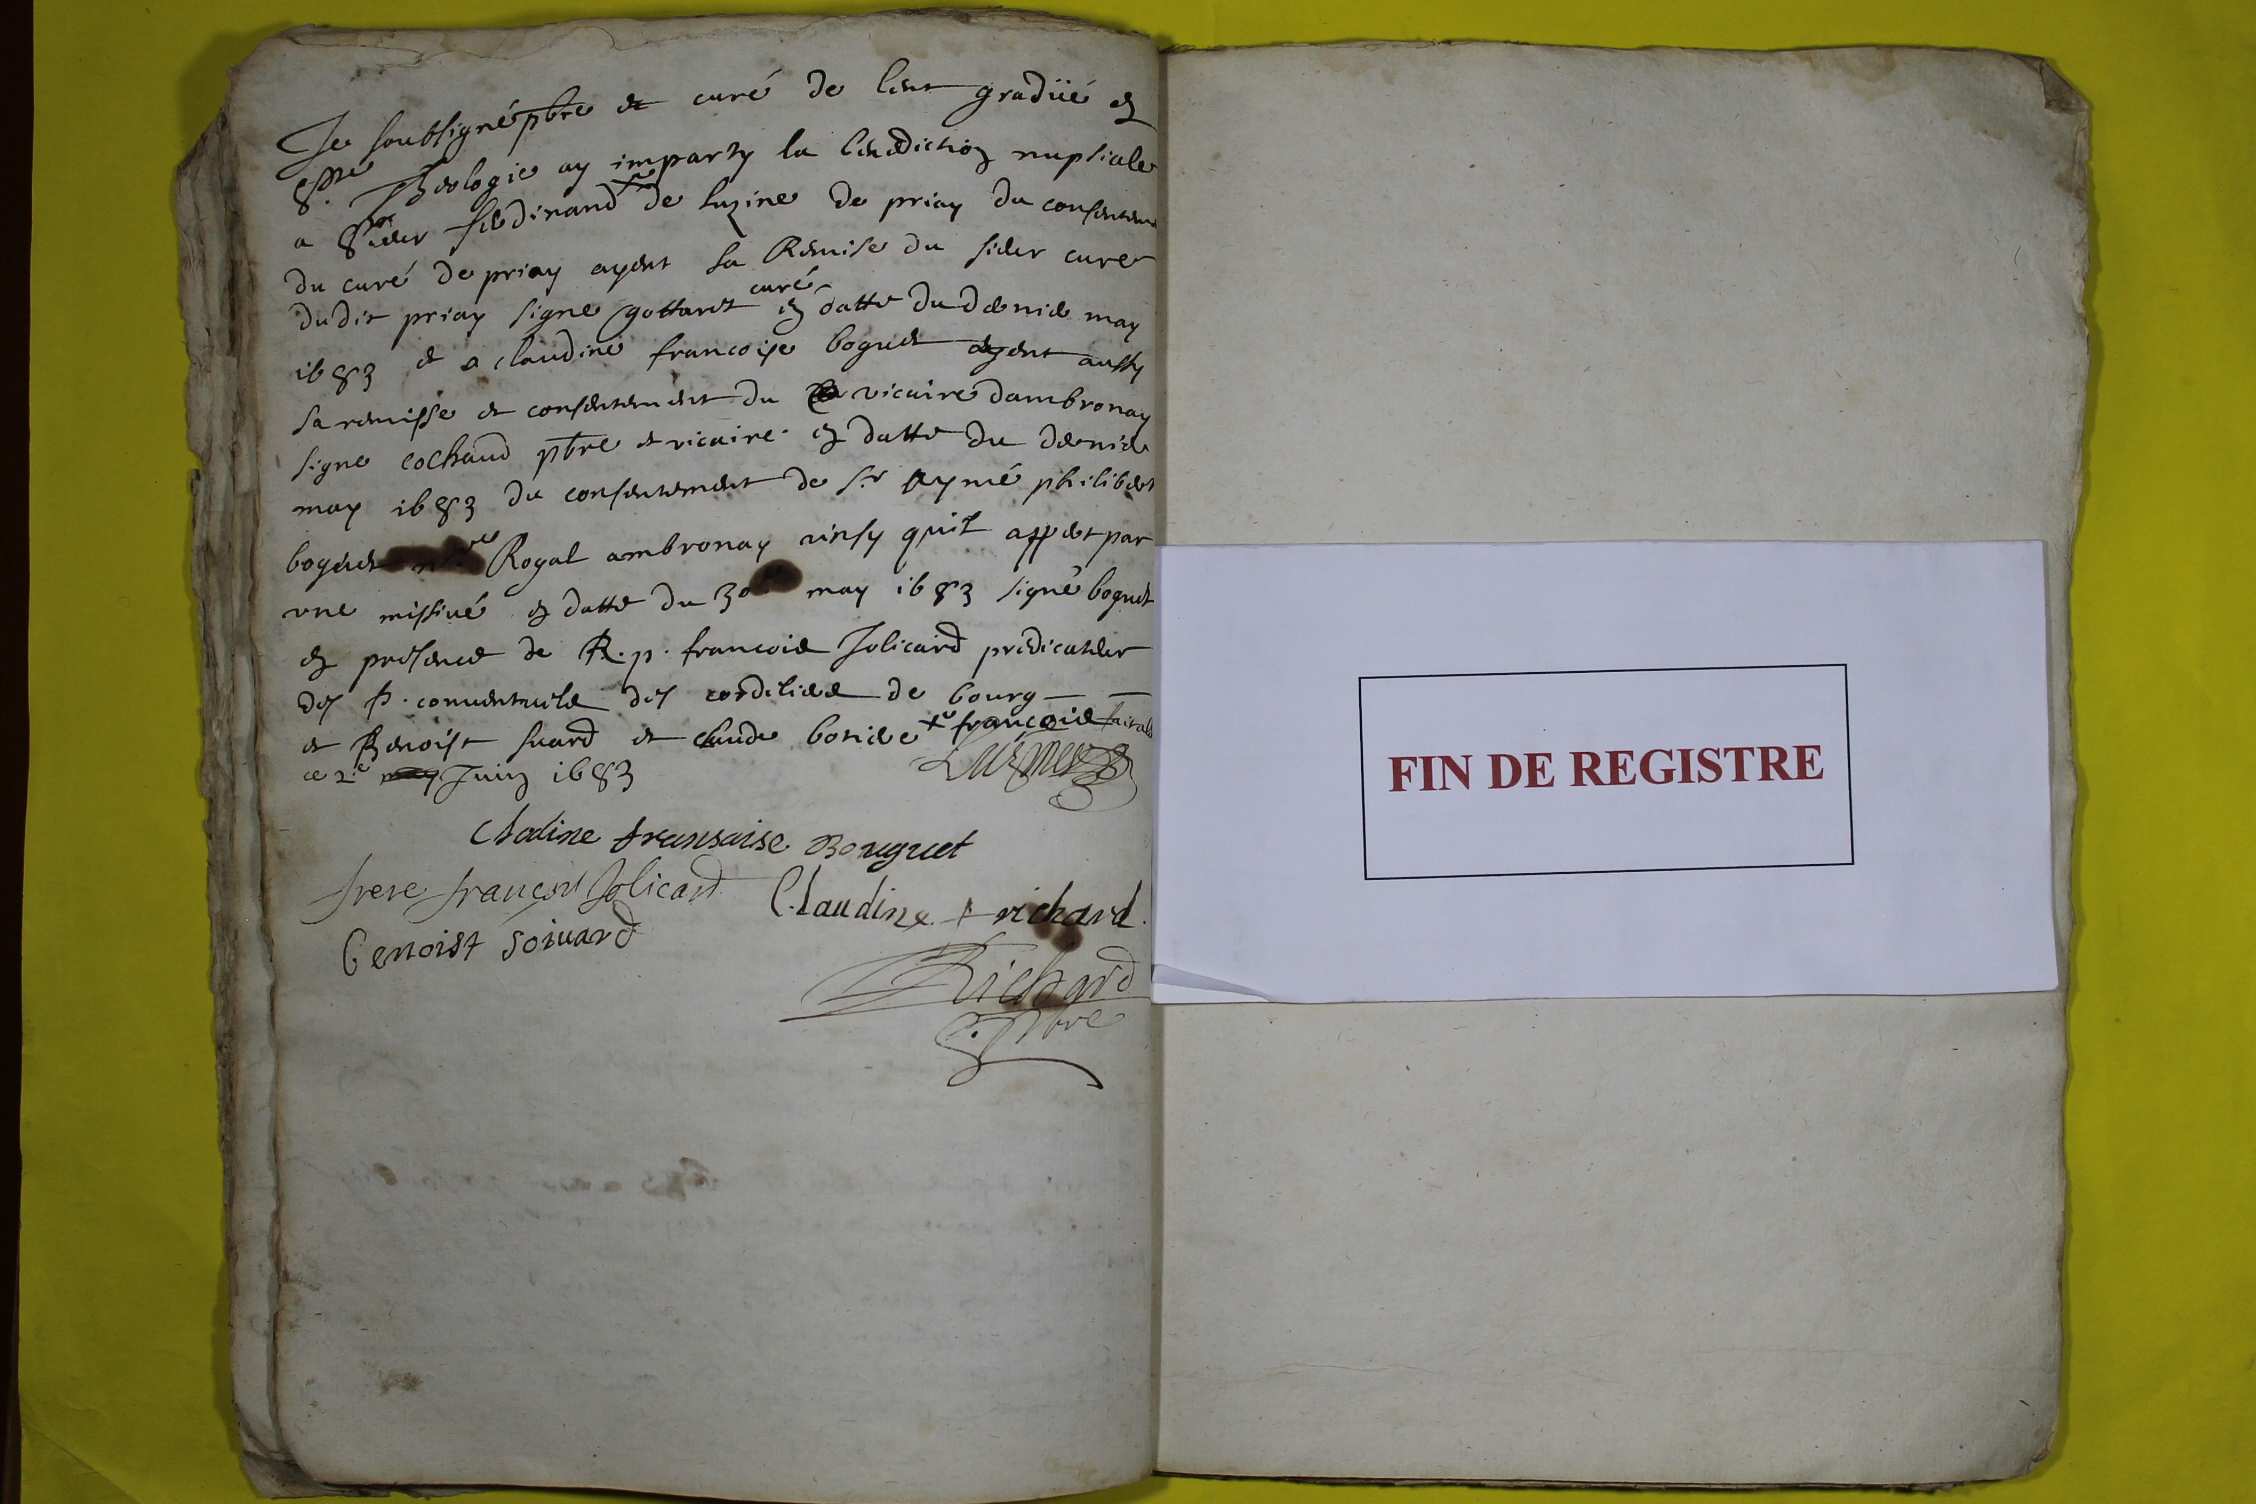 Je soubsigné pbre et curé de lent gradüé en
Ste Theologie ay imparty la benediction nuptiale
a Sieur ferdinand de luzine de priay du consentement
du curé de priay ayent sa Remise du sieur curé
dudit priay signe gottaret curé en datte du dernier may
1683 et a claudine francoise boguet ayent aussy
sa remisse et consentement du vicaire dambronay
signe cochaud pbre et vicaire en datte du dernier
may 1683 du consentement de sr Aymé philibert
boguet Royal ambronay ainsy quil appert par
une missive en datte du 30 may 1683 signé boguet
en presence de R. p. francois Jolicard predicateur
des P. conventuels des cordeliers de bourg
et Benoist suard et claude bonier francois
ce 2e Juin 1683
Luzine
Clodine fransaise Bouguet
frere françois Jolicard
Claudine richard
benoist soiuard
Richard
pbre
FIN DE REGISTRE